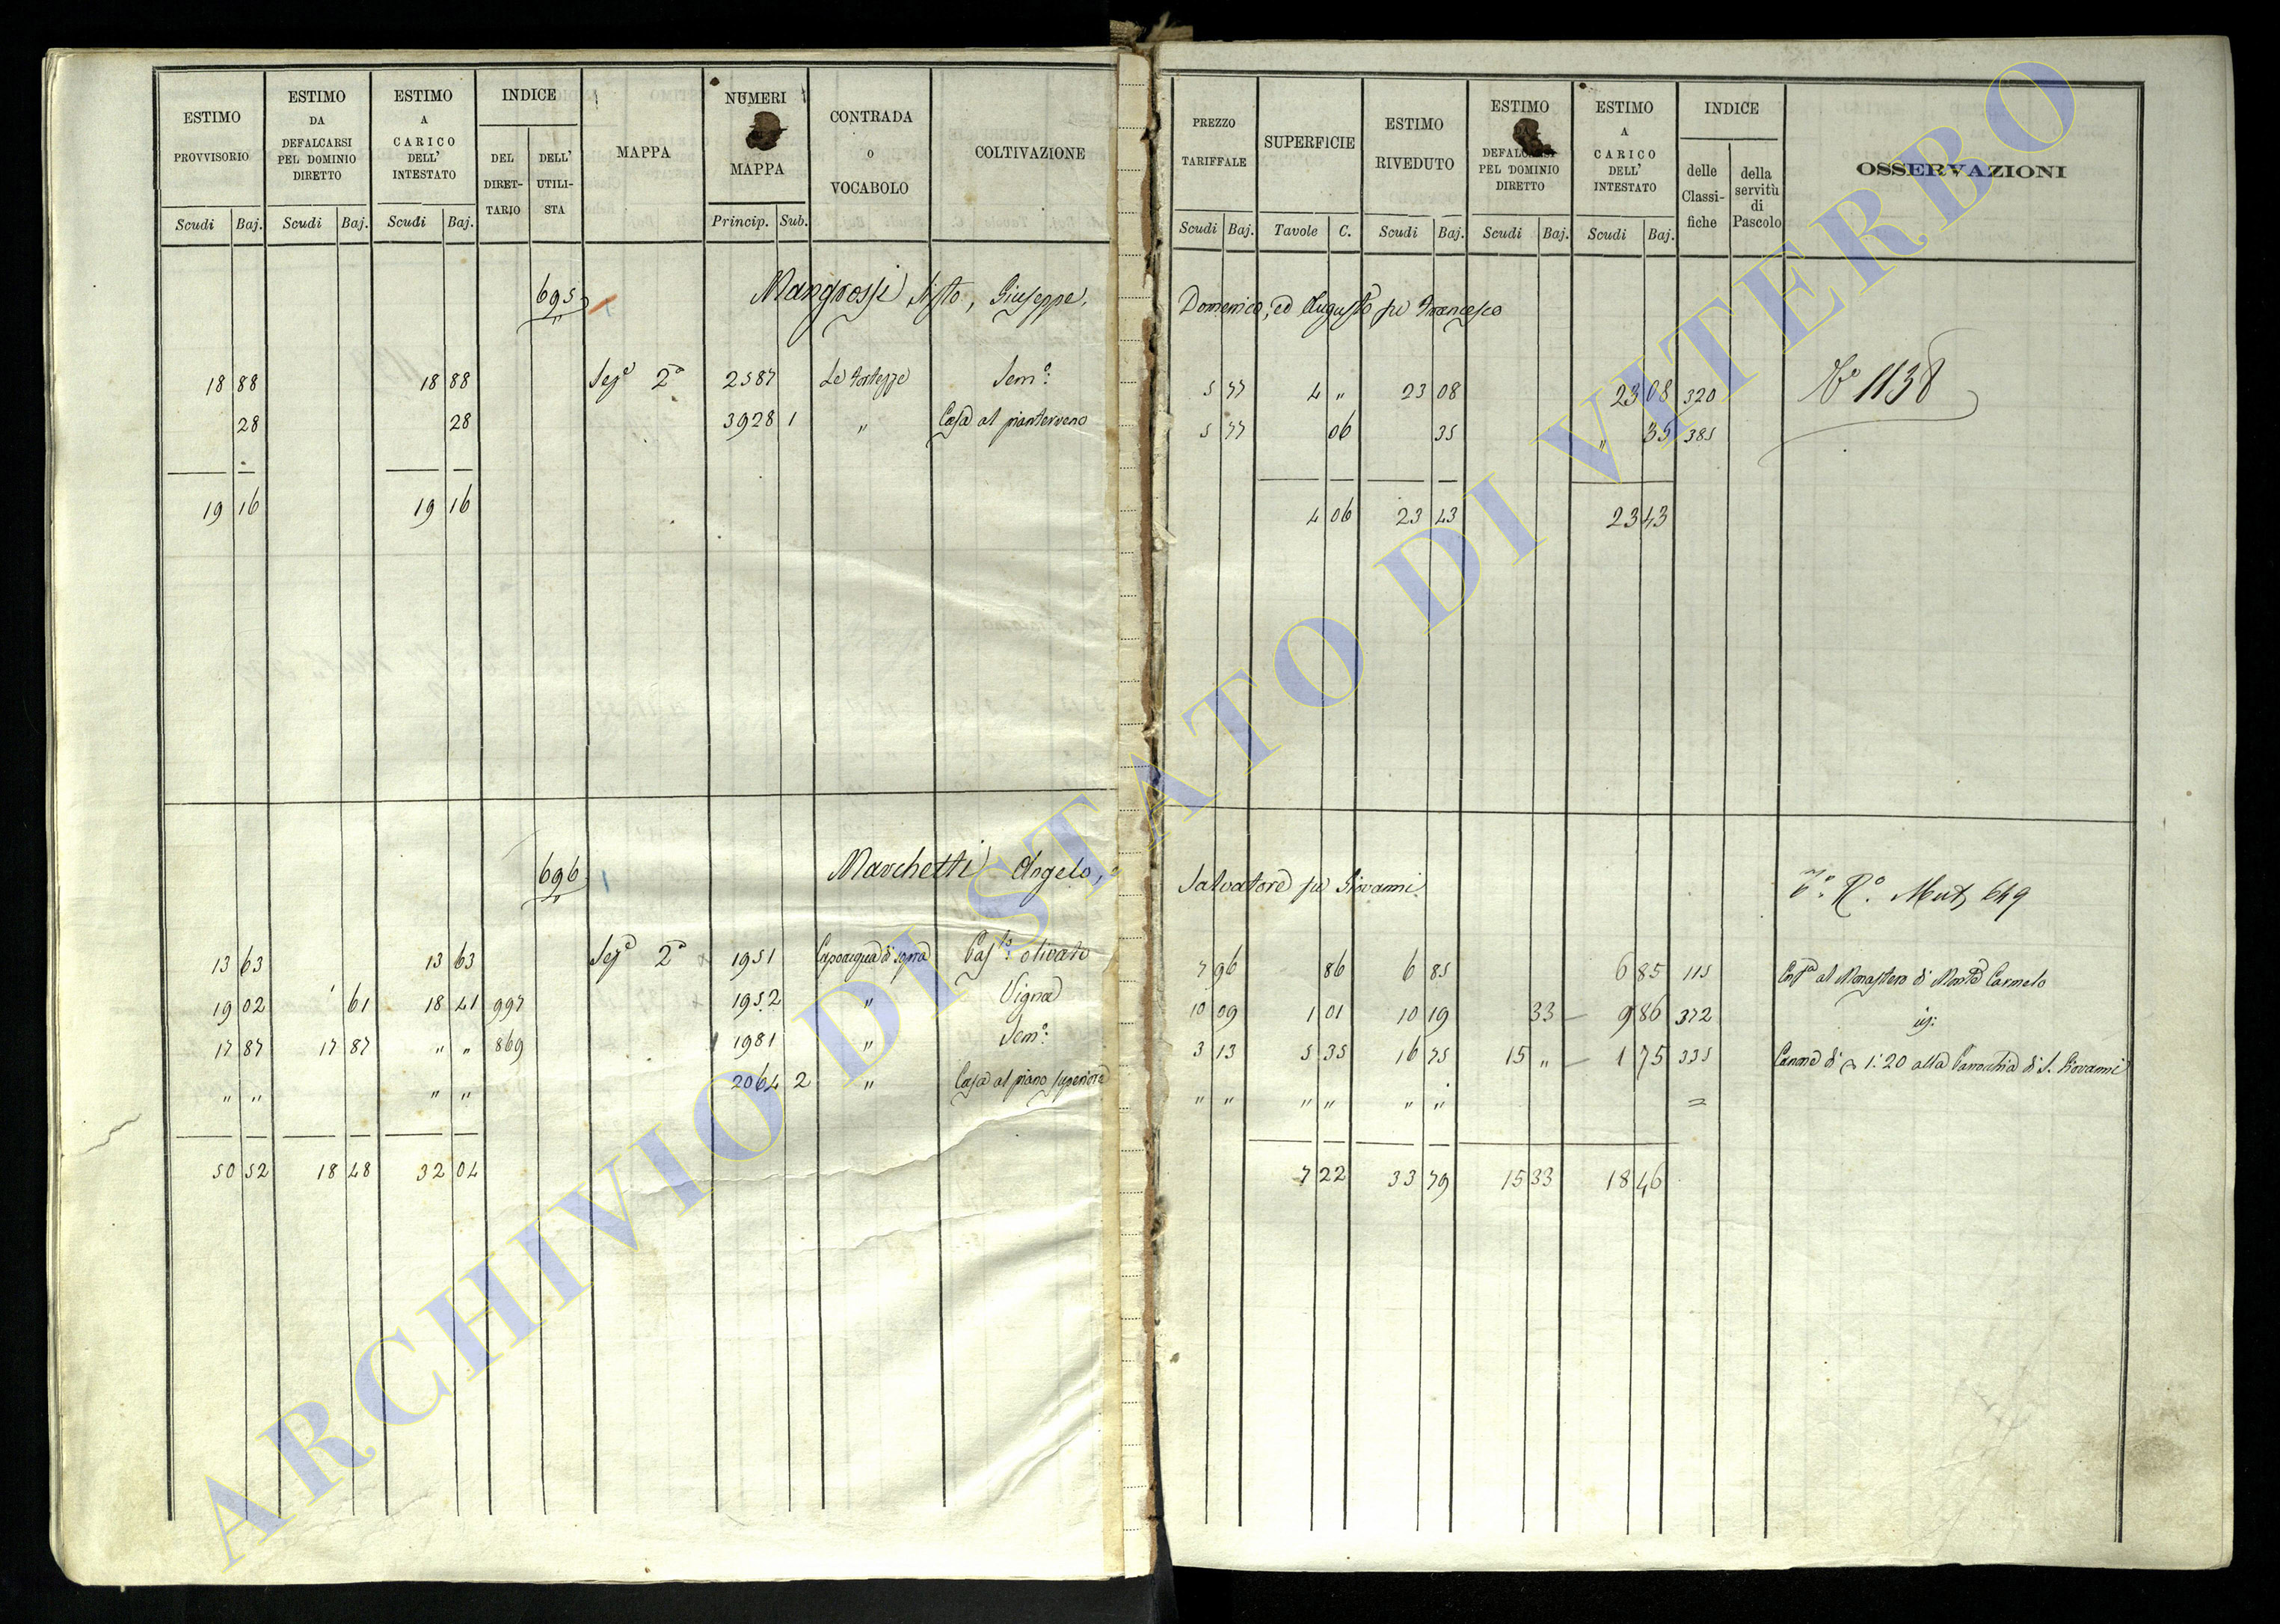 ESTIMO PROVVISORIO Scudi Baj.
ESTIMO DA DEFALCARSI PEL DOMINIO DIRETTO Scudi Baj.
ESTIMO A CARICO DELL' INTESTATO Scudi Baj.
INDICE DEL DIRET- TARIO DELL' UTILI- STA
MAPPA
NUMERI MAPPA Princip. Sub.
CONTRADA O VOCABOLO
COLTIVAZIONE
PREZZO TARIFFALE Scudi Baj.
SUPERFICIE Tavole C.
ESTIMO RIVEDUTO Scudi Baj.
ESTIMO DEFALCARSI PEL DOMINIO DIRETTO Scudi Baj.
ESTIMO A CARICO DELL' INTESTATO Scudi Baj.
INDICE delle Classi- fiche della servitù di Pascolo
OSSERVAZIONI
695 Mangrossi Sisto, Giuseppe, Domenico, ed Augusto fu Francesco
18 88 18 88 Sez.e 2a 2587 Le Fortezze Sem.o 5 77 4 " 23 08 23 08 320 No 1138
28 28 3928 1 " Casa al pianterreno 5 77 06 35 " 35 385
19 16 19 16 4 06 23 43 23 43
696 Marchetti Angelo, e Salvatore fu Giovanni Mut. 649
13 63 13 63 Sez.e 2a 1951 Capoacqua di sopra Pas.o olivato 7 96 86 6 85 6 85 115 al Monastero di Monte Carmelo
19 02 61 18 41 997 1952 " Vigna 10 09 1 01 10 19 33 9 86 372
17 87 17 87 " " 869 1981 " Sem.o 3 13 5 35 16 75 15 " 1 75 335 Canone di 1:20 alla Parrocchia di S. Giovanni
" " " " 2064 2 " Casa al piano superiore " " " " " " =
50 52 18 48 32 04 7 22 33 79 15 33 18 46
ARCHIVIO DI STATO DI VITERBO